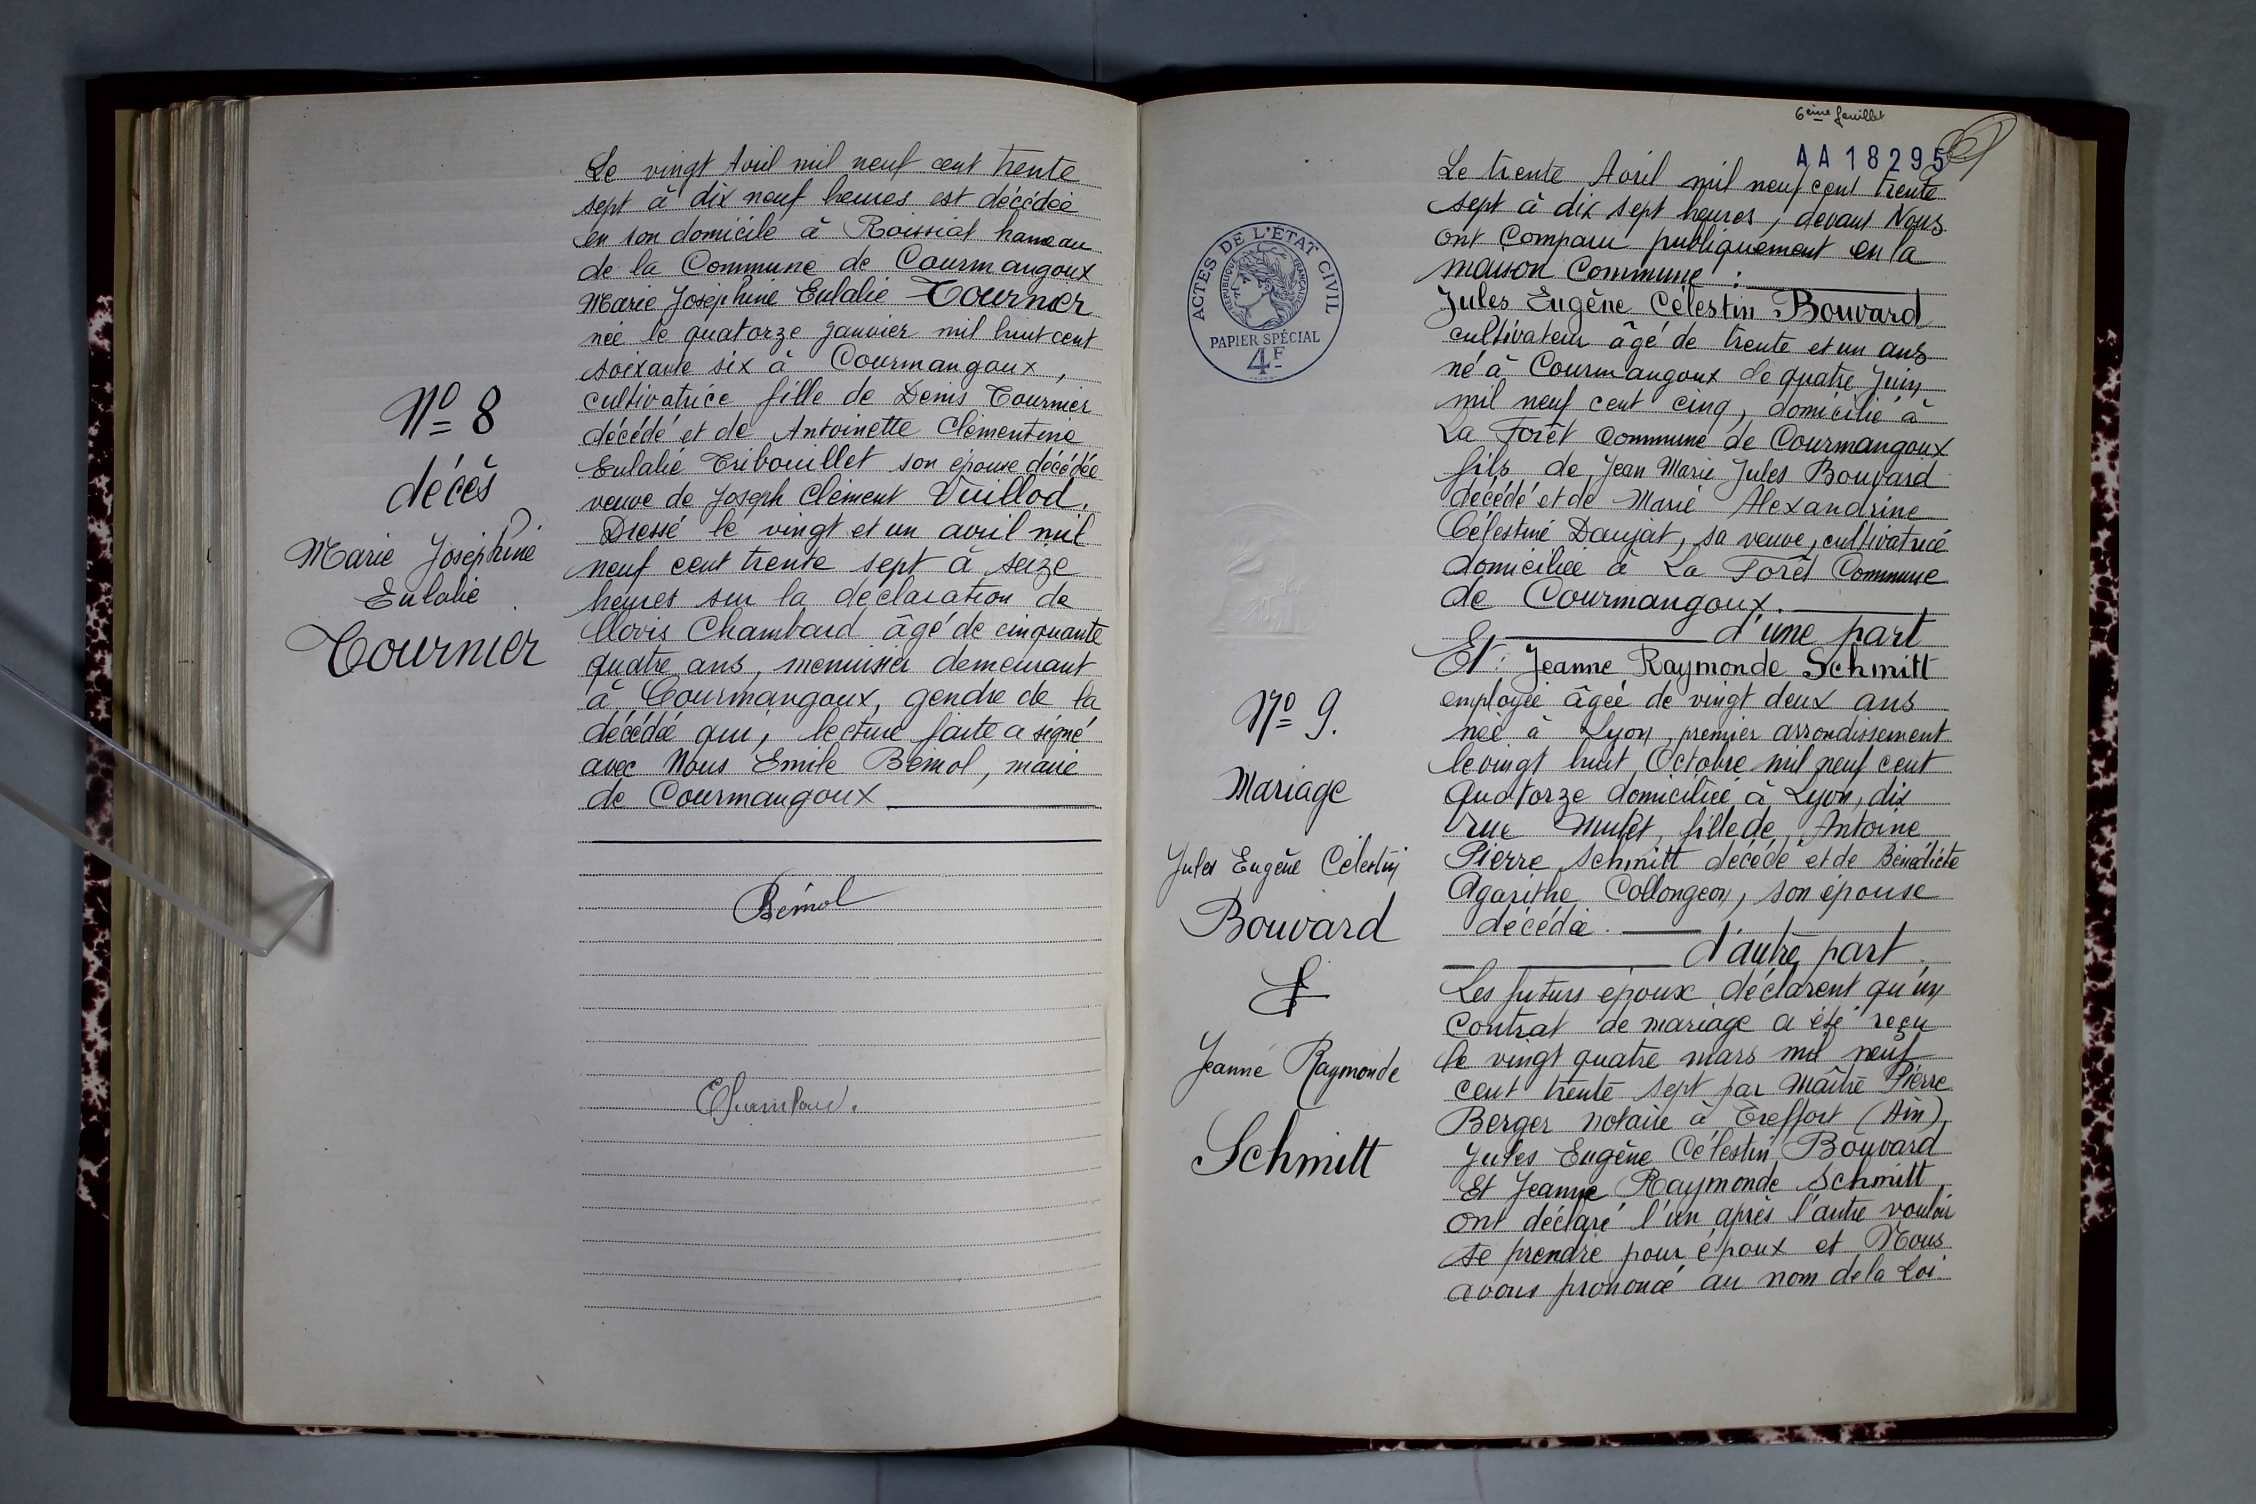 Nº 8
décès
Marie Joséphine
Eulalie
Tournier
Le vingt Avril mil neuf cent trente
sept à dix neuf heures est décédée
en son domicile à Roissiat hameau
de la Commune de Courmangoux
Marie Joséphine Eulalie Tournier
née le quatorze janvier mil huit cent
soixante six à Courmangoux,
cultivatrice fille de Denis Tournier
décédé et de Antoinette Clémentine
Eulalie Tribouillet son épouse décédée
veuve de Joseph Clément Vuillod.
Dressé le vingt et un avril mil
neuf cent trente sept à seize
heures sur la déclaration de
Clovis Chambard âgé de cinquante
quatre ans, menuisier demeurant
à Courmangoux, gendre de la
décédée qui, lecture faite a signé
avec Nous Emile Bémol, maire
de Courmangoux
Bémol
6ème feuillet
AA18295
ACTES DE L'ÉTAT CIVIL
RÉPUBLIQUE FRANÇAISE
PAPIER SPÉCIAL
4F
Nº 9.
Mariage
Jules Eugène Célestin
Bouvard
&
Jeanne Raymonde
Schmitt
Le trente Avril mil neuf cent trente
sept à dix sept heures, devant Nous
ont Comparu publiquement en la
maison Commune :
Jules Eugène Célestin Bouvard
cultivateur âgé de trente et un ans
né à Courmangoux le quatre Juin
mil neuf cent cinq, domicilié à
La Forêt Commune de Courmangoux
fils de Jean Marie Jules Bouvard
décédé et de Marie Alexandrine
Célestine Daujat, sa veuve, cultivatrice
domiciliée à La Forêt Commune
de Courmangoux.
d'une part
Et : Jeanne Raymonde Schmitt
employée âgée de vingt deux ans
née à Lyon, premier arrondissement
le vingt huit Octobre mil neuf cent
quatorze domiciliée à Lyon, dix
rue Mulet, fille de, Antoine
Pierre Schmitt décédé et de Bénédicte
Agarithe Collongeon, son épouse
décédée.
d'autre part.
Les futurs époux déclarent qu'un
contrat de mariage a été reçu
le vingt quatre mars mil neuf
cent trente sept par Maître Pierre
Berger notaire à Treffort (Ain)
Jules Eugène Célestin Bouvard
Et Jeanne Raymonde Schmitt
ont déclaré l'un après l'autre vouloir
se prendre pour époux et Nous
avons prononcé au nom de la Loi